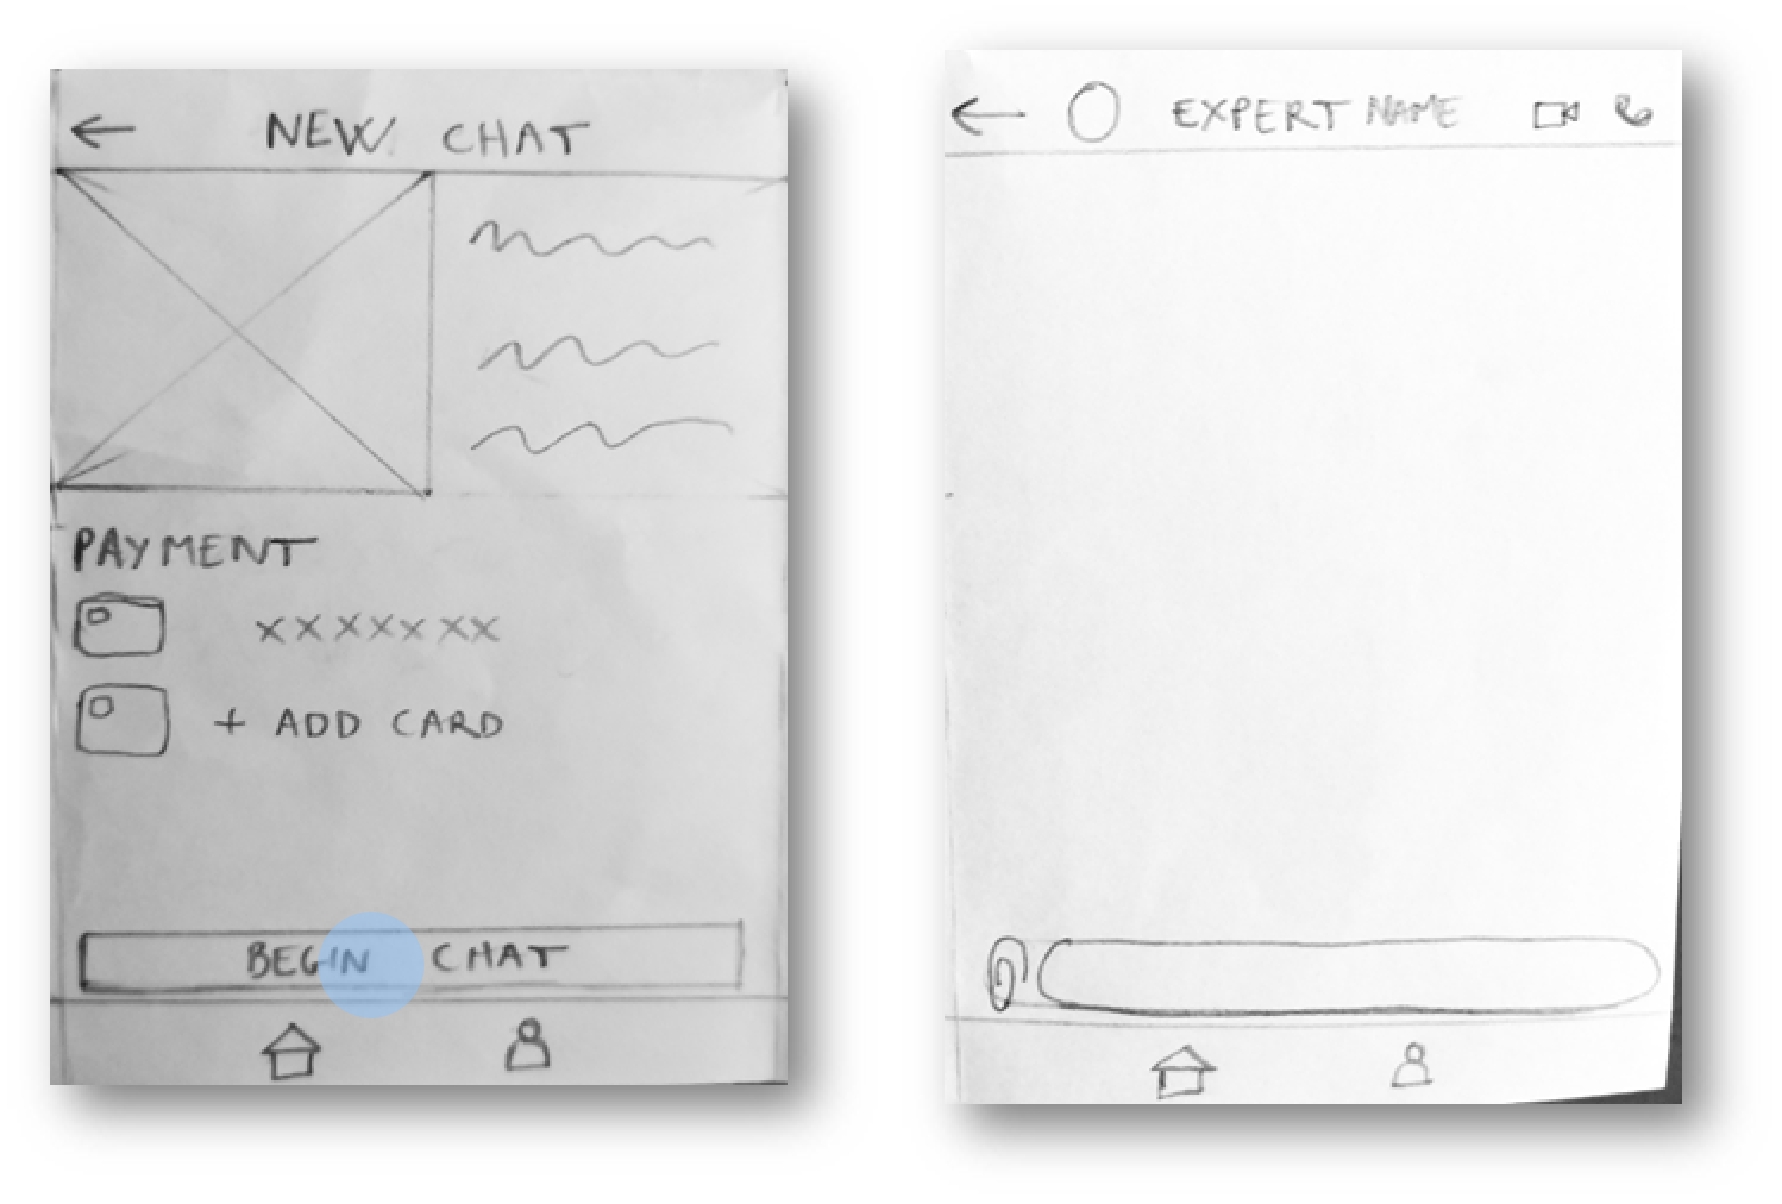 NEW CHAT
PAYMENT
XXXXXXX
+ ADD CARD
BEGIN CHAT
EXPERT NAME